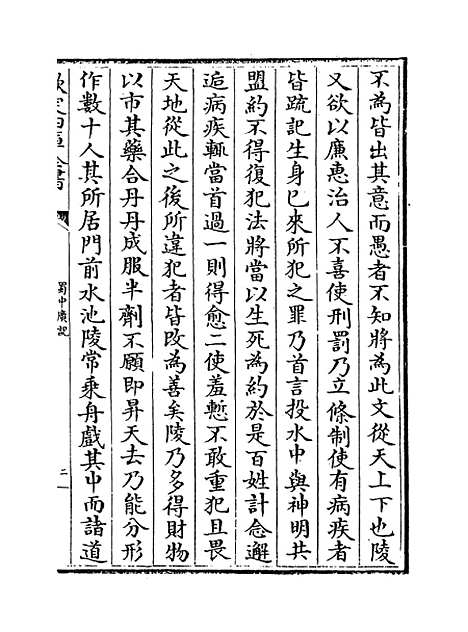 不為皆出其意而愚者不知將為此文從天上下也陵
又欲以廉惠治人不喜使刑罰乃立條制使有病疾者
皆疏記生身已來所犯之罪乃首言投水中與神明共
盟約不得復犯法將當以生死為約於是百姓計念邂
逅病疾輒當首過一則得愈二使羞慙不敢重犯且畏
天地從此之後所違犯者皆改為善矣陵乃多得財物
以市其藥合丹丹成服半劑不願即昇天去乃能分形
作數十人其所居門前水池陵常乘舟戲其中而諸道
欽定四庫全書
蜀中廣記
二